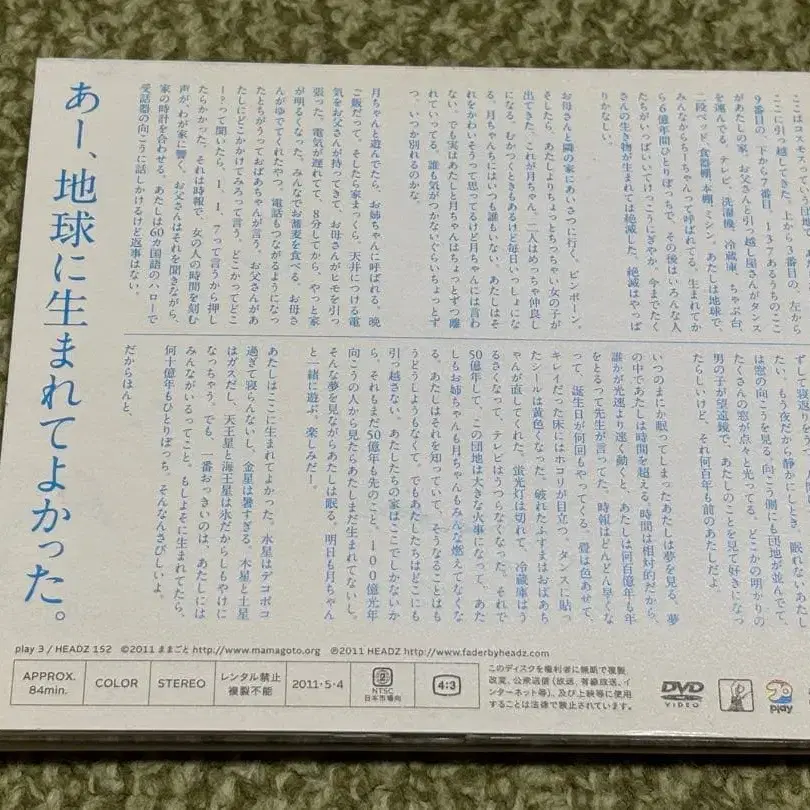 ここはコスモスっていう団地で、あた
ここに引っ越してきた。上から3番目の、左から
9番目の、下から7番目。137あるうちのここ
があたしの家。お父さんと引っ越し屋さんがタンス
を運んでる。テレビ、洗濯機、冷蔵庫、ちゃぶ台、
二段ベッド、食器棚、本棚、ミシン。あたしは地球で、
みんなからちーちゃんって呼ばれてる。生まれてか
ら6億年間ひとりぼっちで、その後はいろんな人
たちがいっぱいいてけっこうにぎやか。今までたく
さんの生き物が生まれては絶滅した。絶滅はやっぱ
りかなしい。
お母さんと隣の家にあいさつに行く。ピンポーン。
そしたら、あたしよりちょっとちっちゃい女の子が
出てきた。これが月ちゃん。二人はめっちゃ仲良し
になる。むかつくときもあるけど毎日いっしょにい
る。月ちゃんちにはいつも誰もいない。あたしはそ
れをかわいそうって思ってるけど月ちゃんには言わ
ない。でも実はあたしと月ちゃんはちょっとずつ離
れていってる。誰も気がつかないぐらいちょっとず
つ。いつか別れるのかな。
月ちゃんと遊んでたら、お姉ちゃんに呼ばれる。晩
ご飯だって。そしたら家まっくら。天井につける電
気をお父さんが持ってきて、お母さんがヒモを引っ
張った。電気が遅れてて、8分してから、やっと家
が明るくなった。みんなでお蕎麦を食べる。お母さ
んがゆでてくれたやつ。電話もつながるようになっ
たとちがうっておばあちゃんが言う。お父さんがあ
たしにどこかかけてみろって言う。どこがってどこ
ー?って聞いたら、1、1、7って言うから押し
たらかかった。それは時報で、女の人の時間を刻む
声が、わが家に響く。お父さんはそれを聞きながら、
家の時計を合わせる。あたしは60カ国語のハローで
受話器の向こうに話しかけるけど返事はない。
たい。もう夜だから静かにしとき。眠れないあたし
は窓の向こうを見る。向こう側にも団地が並んでて、
たくさんの窓が点々と光ってる。どこかの明かりの
男の子が望遠鏡で、あたしのことを見て好きになっ
たらしいけど、それ何百年も前のあたしだよ。
いつのまにか眠ってしまったあたしは夢を見る。夢
の中であたしは時間を超える。時間は相対的だから、
誰かが光速より速く動くと、あたしは何百億年も年
をとるって先生が言ってた。時報はどんどん早くな
って、誕生日が何回もやってくる。畳は色あせて、
キレイだった床にはホコリが目立つ。タンスに貼っ
たシールは黄色くなった。破れたふすまはおばあち
ゃんが直してくれた。蛍光灯は切れて、冷蔵庫はう
るさくなって、テレビはうつらなくなった。それで
50億年して、この団地は大きな火事になって、あた
しもお姉ちゃんも月ちゃんもみんな燃えてなくな
る。あたしはそれを知っていて、そうなることはも
うどうしようもなくて。でもあたしたちはどこにも
引っ越さない。あたしたちの家はここでしかないか
ら。それもまだ50億年も先のこと。100億光年
向こうの人から見たらあたしまだ生まれてないし。
そんな夢を見ながらあたしは眠る。明日も月ちゃん
と一緒に遊ぶ。楽しみだー。
あたしはここに生まれてよかった。水星はデコボコ
過ぎて寝らんないし、金星は暑すぎる。木星と土星
はガスだし、天王星と海王星は氷だからしもやけに
なっちゃう。でも、一番おっきいのは、あたしには
みんながいるってこと。もしよそに生まれてたら、
何十億年もひとりぼっち。そんなんさびしいよ。
だからほんと、
あー、地球に生まれてよかった。
play 3 / HEADZ 152 ©2011 ままごと http://www.mamagoto.org ℗2011 HEADZ http://www.faderbyheadz.com
APPROX. 84min.
COLOR
STEREO
レンタル禁止 複製不能
2011・5・4
2 NTSC 日本市場向
4:3
このディスクを権利者に無断で複製
改変、公衆送信(放送、有線放送、イ
ンターネット等)、及び上映等に使用
することは法律で禁止されています。
DVD VIDEO
play